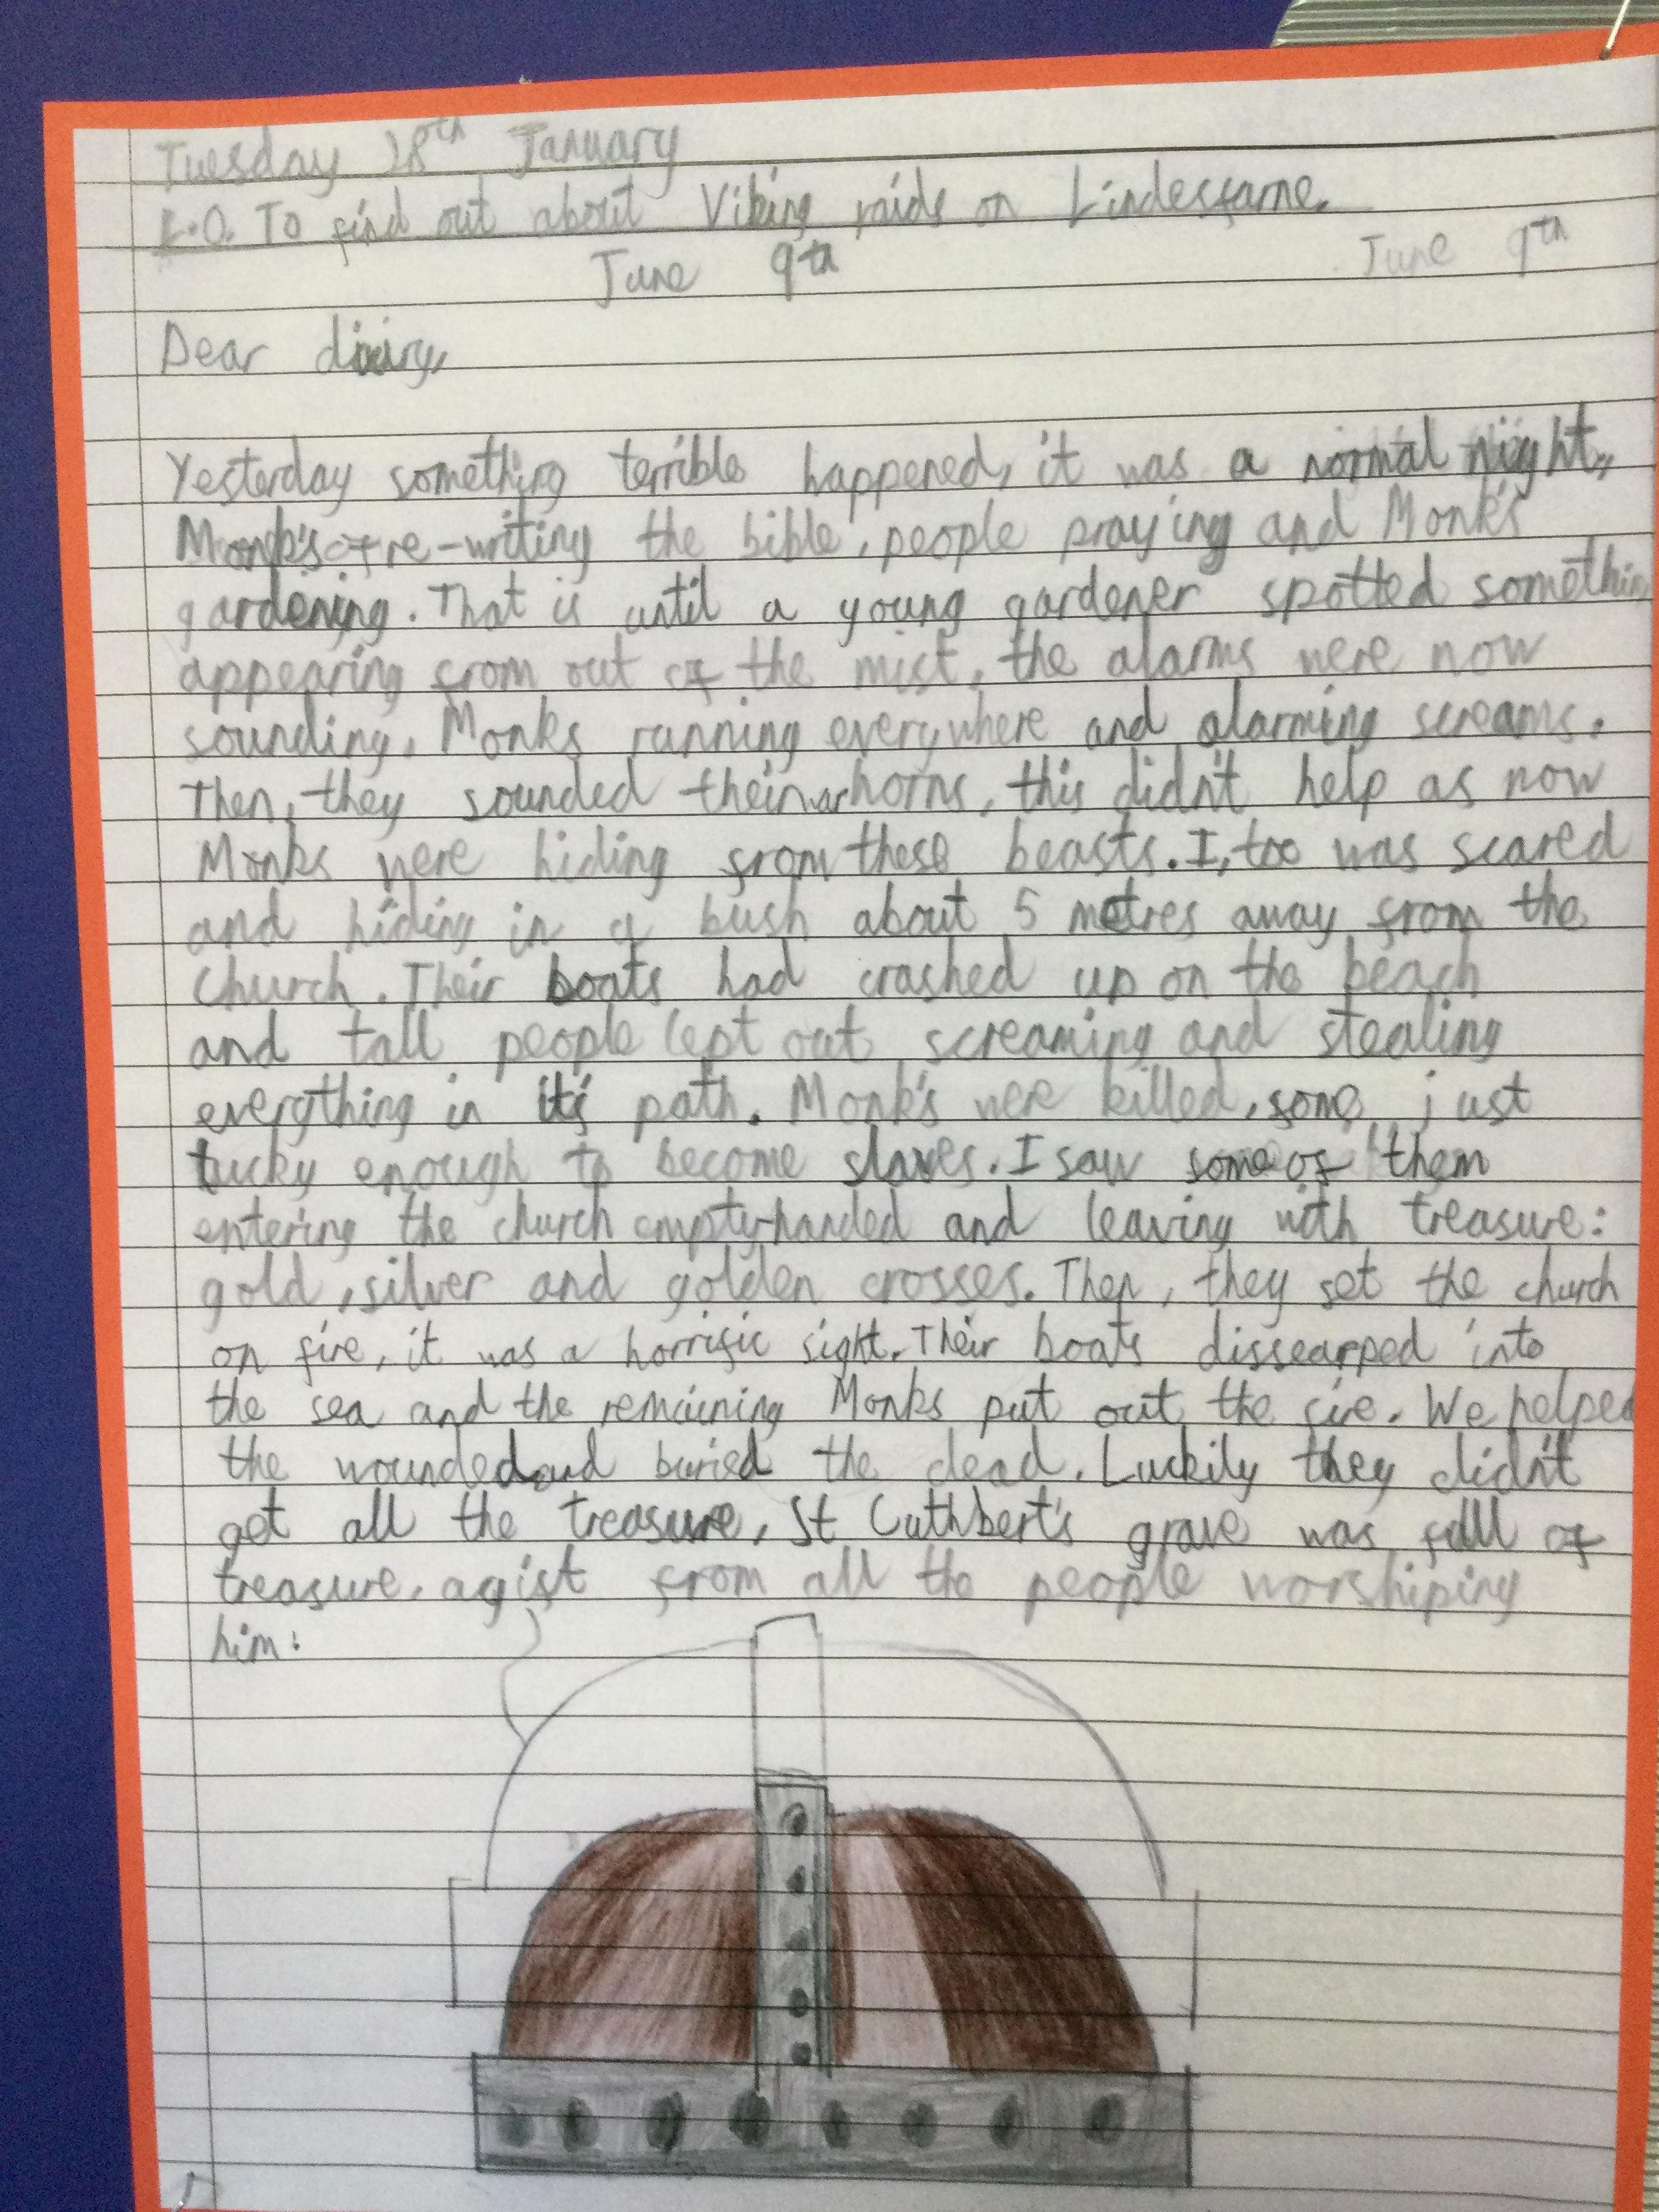 Tuesday 28th January
L.O. To find out about Viking raids on Lindesfarne.
June 9th June 9th
Dear diary,
Yesterday something terrible happened, it was a normal night,
Monk's re-writing the bible, people praying and Monk's
gardening. That is until a young gardener spotted somethin
appearing from out of the mist, the alarms were now
sounding, Monks running everywhere and alarming screams.
Then, they sounded their war horns, this didn't help as now
Monks were hiding from these beasts. I, too was scared
and hiding in a bush about 5 metres away from the
church. Their boats had crashed up on the beach
and tall people lept out screaming and stealing
everything in it's path. Monk's were killed, some just
lucky enough to become slaves. I saw some of them
entering the church empty-handed and leaving with treasure:
gold, silver and golden crosses. Then, they set the church
on fire, it was a horrific sight. Their boats dissearpped into
the sea and the remaining Monks put out the fire. We helped
the wounded and buried the dead. Luckily they didn't
get all the treasure, St Cuthbert's grave was full of
treasure, agist from all the people worshiping
him!